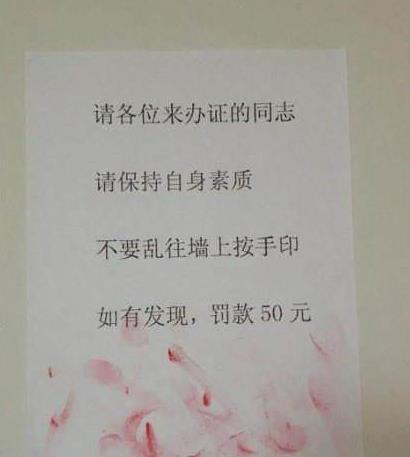 请各位来办证的同志
请保持自身素质
不要乱往墙上按手印
如有发现，罚款 50 元